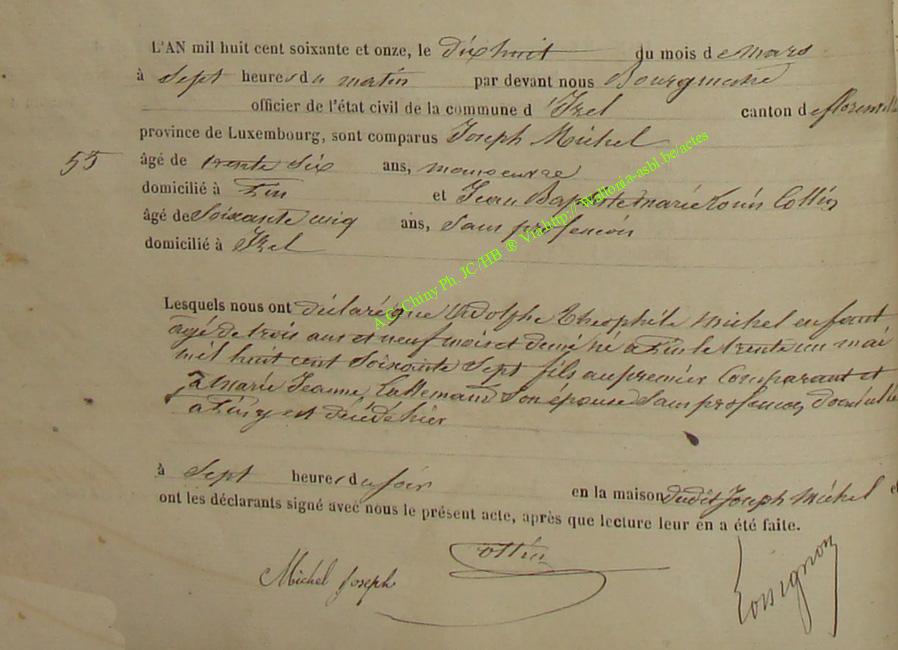 L'AN mil huit cent soixante et onze, le dix huit du mois de Mars
à Sept heures du matin par devant nous Bourgmestre
officier de l'état civil de la commune d'Izel canton de florenville
province de Luxembourg, sont comparus Joseph Michel
55 âgé de trente Six ans, manoeuvre
domicilié à Pin et Jean Baptiste Marie Louis Collin
âgé de Soixante cinq ans, Sans profession
domicilié à Izel
A.G. Chiny Ph. JC/HB ® Via http://wallonia-asbl.be/actes
Lesquels nous ont déclaré que Adolphe Theophile Michel enfant
agé de trois ans et neuf mois et demi né à Pin le trente un mai
mil huit cent Soixante Sept fils au premier Comparant et
à Marie Jeanne Lallemand Son épouse Sans profession, domiciliée
à Pin, y est décédé hier
à Sept heures du soir en la maison dudit Joseph Michel et
ont les déclarants signé avec nous le présent acte, après que lecture leur en a été faite.
Michel Joseph Collin Rossignon